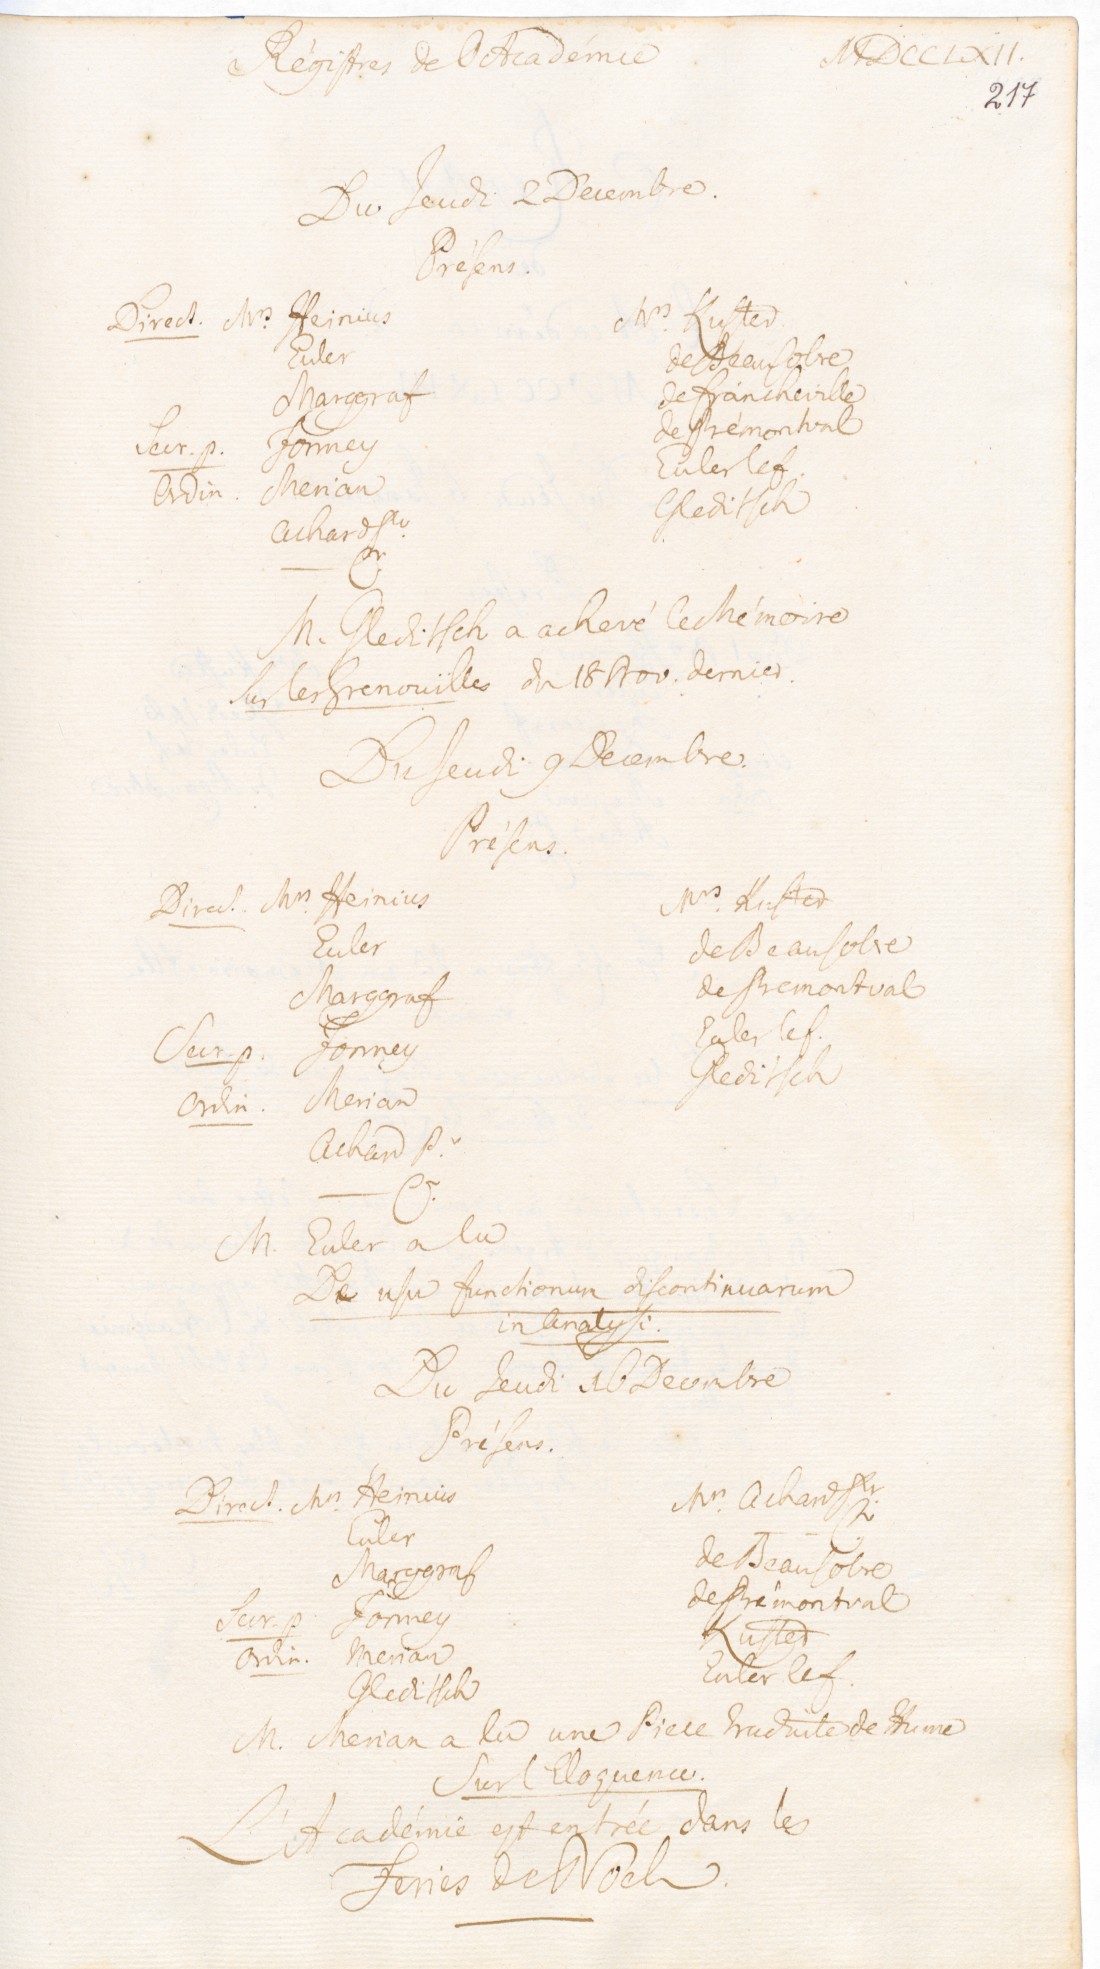 Régistres de l'Académie MDCCLXII.
217
Du Jeudi 2 Decembre.
Présens.
Direct. Mrs. Heinius
Euler
Marggraf
Secr. p. Formey
Ordin. Merian
Achard
Mrs. Kuster
de Beausobre
de Francheville
de Prémontval
Euler le f.
Gleditsch
M. Gleditsch a achevé le Mémoire
sur les Grenouilles du 18 Nov. dernier.
Du Jeudi 9 Decembre.
Présens.
Direct. Mrs. Heinius
Euler
Marggraf
Secr. p. Formey
Ordin. Merian
Achard
Mrs. Kuster
de Beausobre
de Premontval
Euler le f.
Gleditsch
M. Euler a lu
De usu functionum discontinuarum
in Analysi.
Du Jeudi 16 Decembre
Présens.
Direct. Mrs. Heinius
Euler
Marggraf
Secr. p. Formey
Ordin. Merian
Gleditsch
Mrs. Achard
de Beausobre
de Prémontval
Kuster
Euler le f.
M. Merian a lu une Piece traduite de Hume
Sur l'Eloquence.
L'Académie est entrée dans les
Feries de Noel.